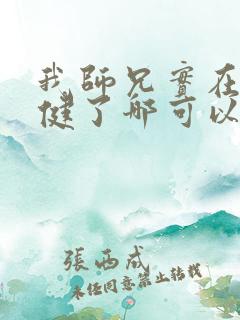 我師兄實在
健了那可以
張西成
未任同意禁止轉載